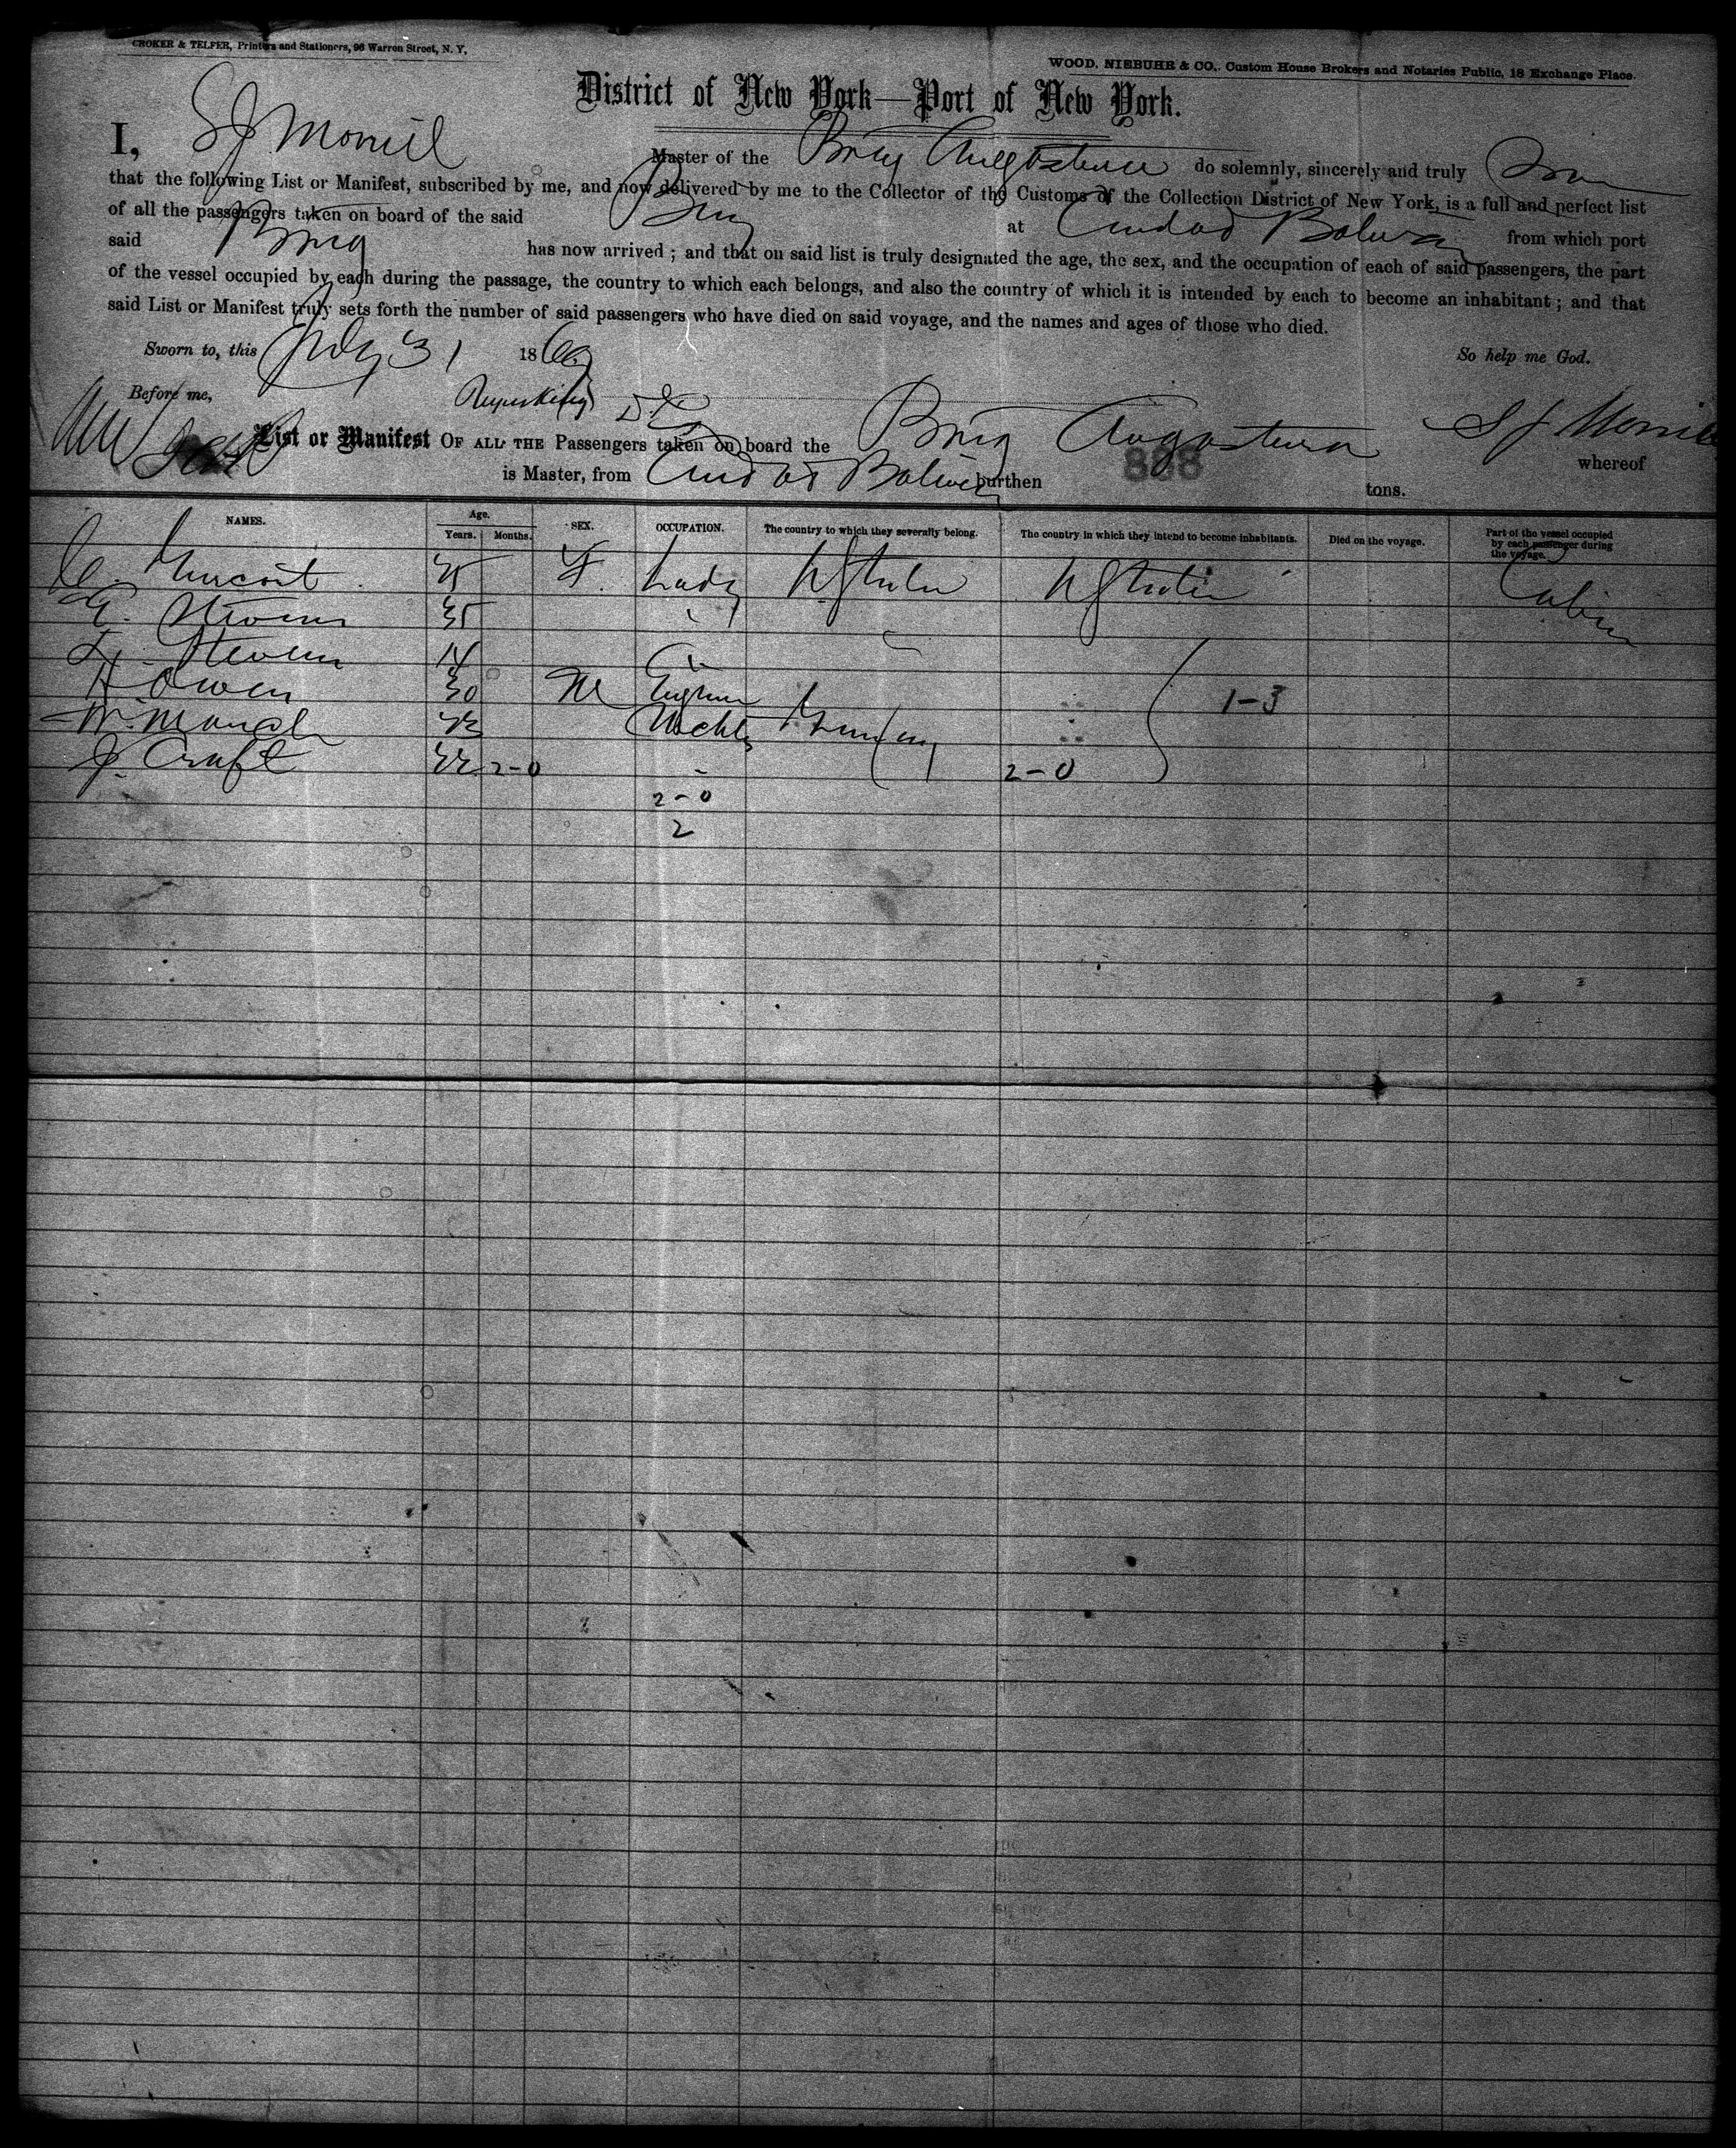 CROKER & TELFER, Printers and Stationers, 96 Warren Street, N. Y.
WOOD, NIEBUHR & CO., Custom House Brokers and Notaries Public, 18 Exchange Place.
District of New York—Port of New York.
I, S J Morrill Master of the Brig Angostura do solemnly, sincerely and truly
that the following List or Manifest, subscribed by me, and now delivered by me to the Collector of the Customs of the Collection District of New York, is a full and perfect list
of all the passengers taken on board of the said Brig at Ciudad Bolivar from which port
said Brig has now arrived ; and that on said list is truly designated the age, the sex, and the occupation of each of said passengers, the part
of the vessel occupied by each during the passage, the country to which each belongs, and also the country of which it is intended by each to become an inhabitant ; and that
said List or Manifest truly sets forth the number of said passengers who have died on said voyage, and the names and ages of those who died.
Sworn to, this July 31 18 So help me God.
Before me,
List or Manifest OF ALL THE Passengers taken on board the Brig Angostura S J Morrill whereof
is Master, from Ciudad Bolivar burthen 888 tons.
NAMES. Age. Years. Months. SEX. OCCUPATION. The country to which they severally belong. The country in which they intend to become inhabitants. Died on the voyage. Part of the vessel occupied by each passenger during the voyage.
F. Lady U States U States Cabin
Stevens 35 "
L. Stevens 14 "
H. Owen 30 M 1-3
W.
J. Craft 2-0 " 2-0
2-0
2